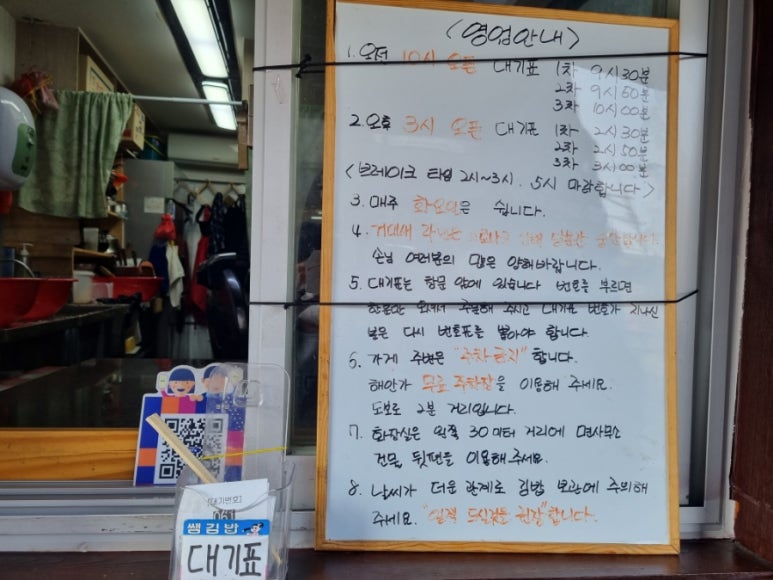 <영업안내>
1. 오전 10시 오픈 대기표 1차 9시30분
2차 9시50분
3차 10시00분
2. 오후 3시 오픈 대기표 1차 2시30분
2차 2시50분
3차 3시00분
<브레이크 타임 2시~3시. 5시 마감합니다>
3. 매주 화요일은 쉽니다.
4. 거대새우
손님 여러분의 많은 양해바랍니다.
5. 대기표는 창문 앞에 있습니다 번호를 부르면
창문안 주문해 주시고 대기표 번호가 지나신
분은 다시 번호표를 뽑아야 합니다.
6. 가게 주변은 "주차금지" 합니다.
해안가 무료 주차장을 이용해 주세요.
도보로 2분 거리입니다.
7. 화장실은 왼쪽 30미터 거리에 면사무소
건물 뒷편을 이용해주세요.
8. 날씨가 더운 관계로 김밥 보관에 주의해
주세요. "일찍 드실것을 권장"합니다.
[대기번호]
061
쌩김밥
대기표